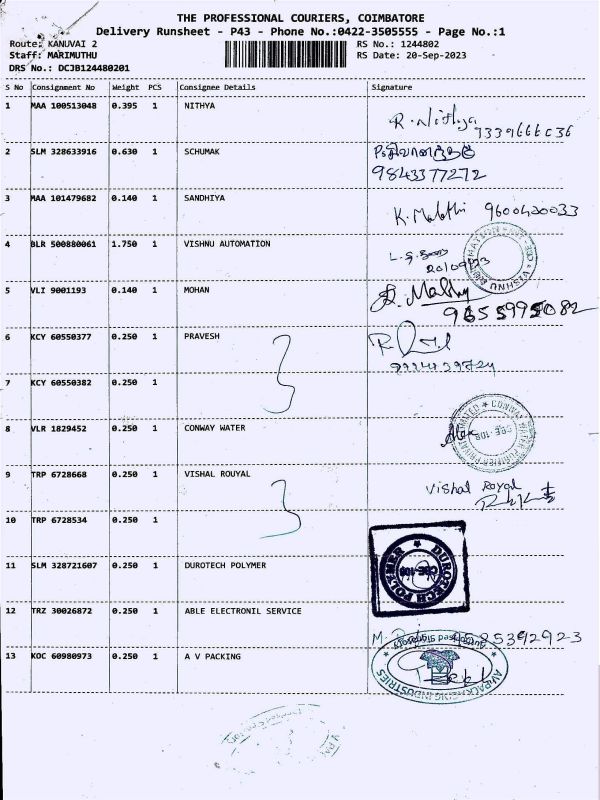 THE PROFESSIONAL COURIERS, COIMBATORE
Delivery Runsheet - P43 - Phone No.:0422-3505555 - Page No.:1
Route: KANUVAI 2 RS No.: 1244802
Staff: MARIMUTHU RS Date: 20-Sep-2023
DRS No.: DCJB124480201
S No Consignment No Weight PCS Consignee Details Signature
1 MAA 100513048 0.395 1 NITHYA R. Nithya
2 SLM 328633916 0.630 1 SCHUMAK
9843377272
3 MAA 101479682 0.140 1 SANDHIYA K. Malathi 9600420033
4 BLR 500880061 1.750 1 VISHNU AUTOMATION
20/09/23
5 VLI 9001193 0.140 1 MOHAN
9655995082
6 KCY 60550377 0.250 1 PRAVESH
7 KCY 60550382 0.250 1
8 VLR 1829452 0.250 1 CONWAY WATER
9 TRP 6728668 0.250 1 VISHAL ROUYAL Vishal Royal
10 TRP 6728534 0.250 1
11 SLM 328721607 0.250 1 DUROTECH POLYMER DUROTECH POLYMER CBE-108
12 TRZ 30026872 0.250 1 ABLE ELECTRONIL SERVICE
13 KOC 60980973 0.250 1 A V PACKING AV PACKAGING INDUSTRIES